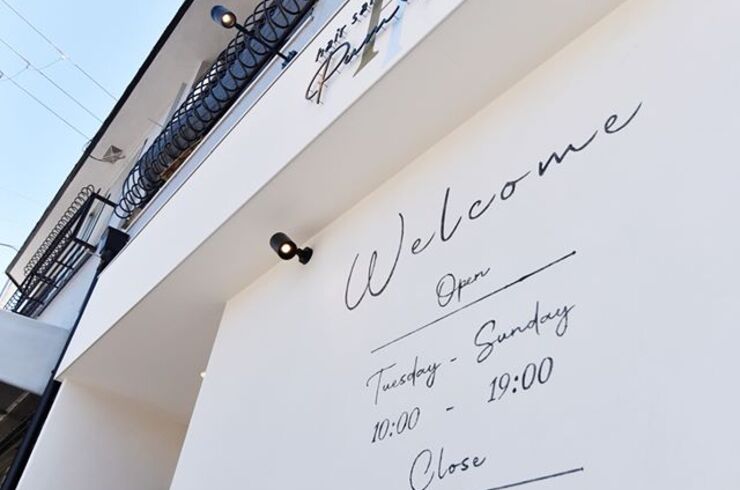 hair sal
Welcome
Open
Tuesday - Sunday
10:00 - 19:00
Close